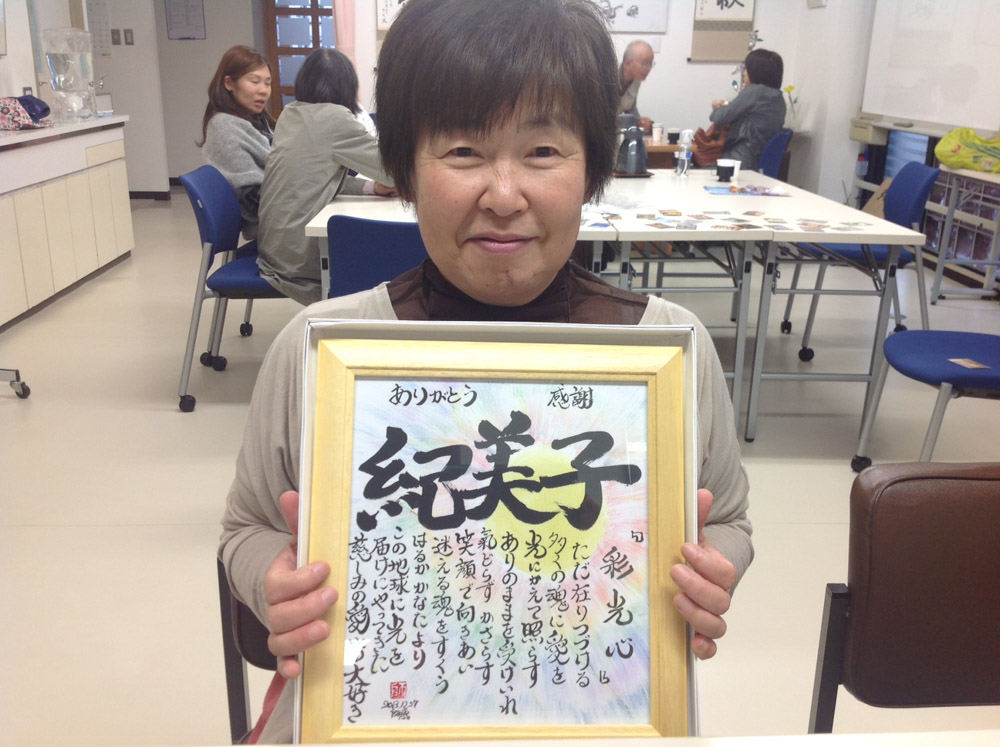 ありがとう 感謝
紀美子
『彩光心』
ただ在りつづける
多くの魂に愛を
光にかえて照らす
ありのままを受けいれ
氣どらず かざらず
笑顔で向きあい
迷える魂をすくう
はるかかなたより
この地球に光を
届けにやってきた
慈しみの愛 大好き